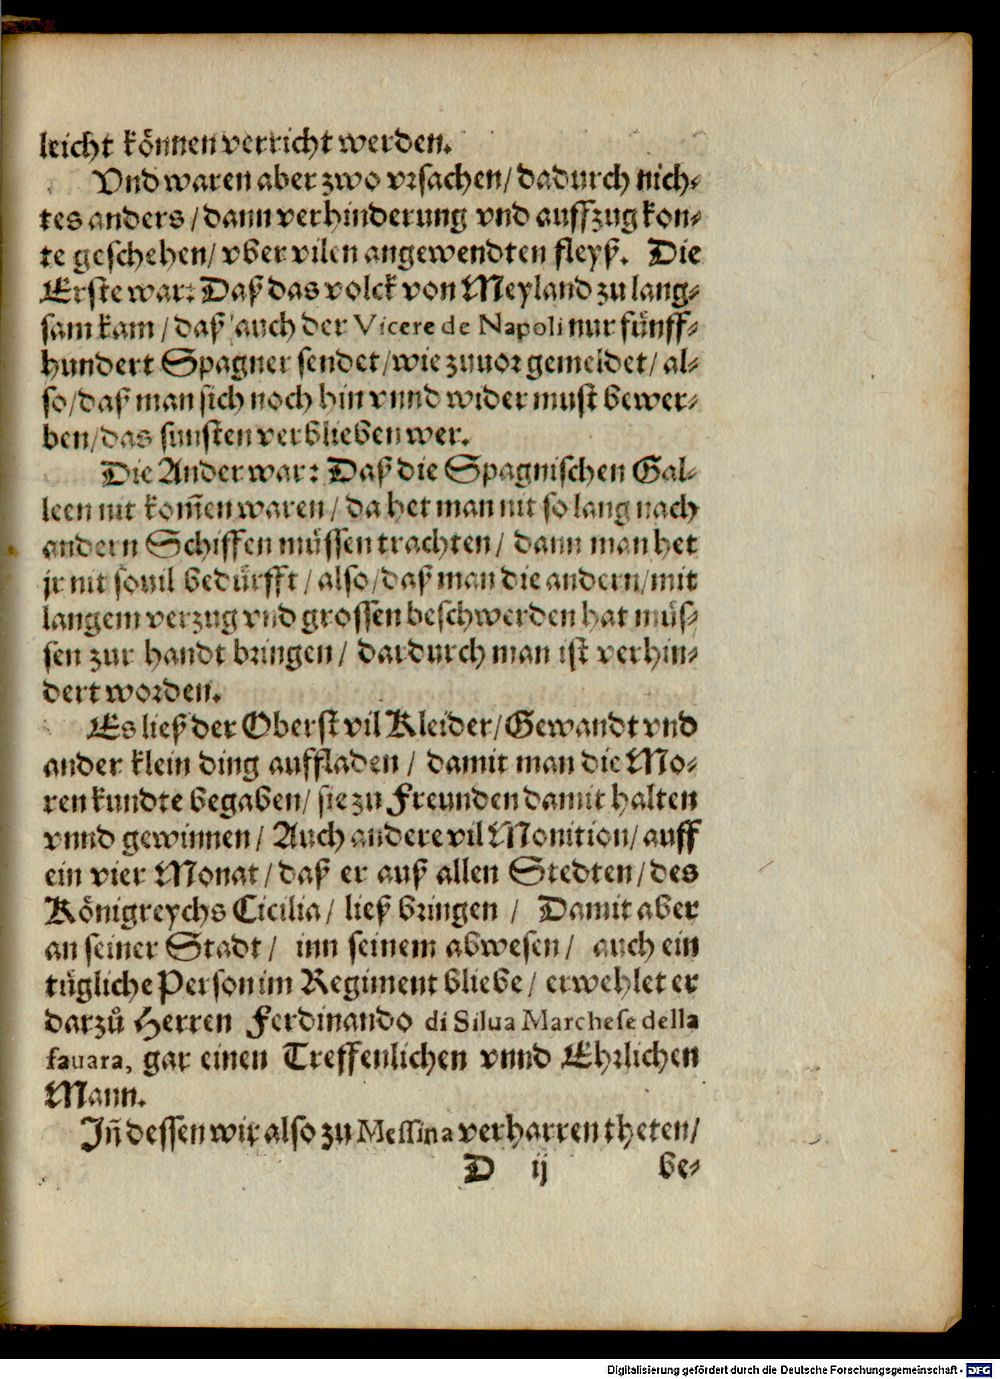 leicht können verricht werden.
Vnd waren aber zwo vrsachen/ dadurch nich-
tes anders/ dann verhinderung vnd auffzug kon-
te geschehen/ vber vilen angewendten fleyß. Die
Erste war: Daß das volck von Meyland zu lang-
sam kam/ daß auch der Vicere de Napoli nur fünff-
hundert Spagner sendet/ wie zuuor gemeldet/ al-
so/ daß man sich noch hin vnnd wider must bewer-
ben/ das sunsten verblieben wer.
Die Ander war: Daß die Spagnischen Gal-
leen nit kom̃en waren/ da het man nit so lang nach
andern Schiffen müssen trachten/ dann man het
jr nit souil bedürfft/ also/ daß man die andern/ mit
langem verzug vnd grossen beschwerden hat müs-
sen zur handt bringen/ dardurch man ist verhin-
dert worden.
Es ließ der Oberst vil Kleider/ Gewandt vnd
ander klein ding auffladen/ damit man die Mo-
ren kundte begaben/ sie zu Freunden damit halten
vnnd gewinnen/ Auch andere vil Monition/ auff
ein vier Monat/ daß er auß allen Stedten/ des
Königreychs Cicilia/ ließ bringen/ Damit aber
an seiner Stadt/ inn seinem abwesen/ auch ein
tügliche Person im Regiment bliebe/ erwehlet er
darzů Herren Ferdinando di Silua Marchese della
fauara, gar einen Treffenlichen vnnd Ehrlichen
Mann.
Jñ dessen wir also zu Messina verharren theten/
D ij be-
Digitalisierung gefördert durch die Deutsche Forschungsgemeinschaft - DFG